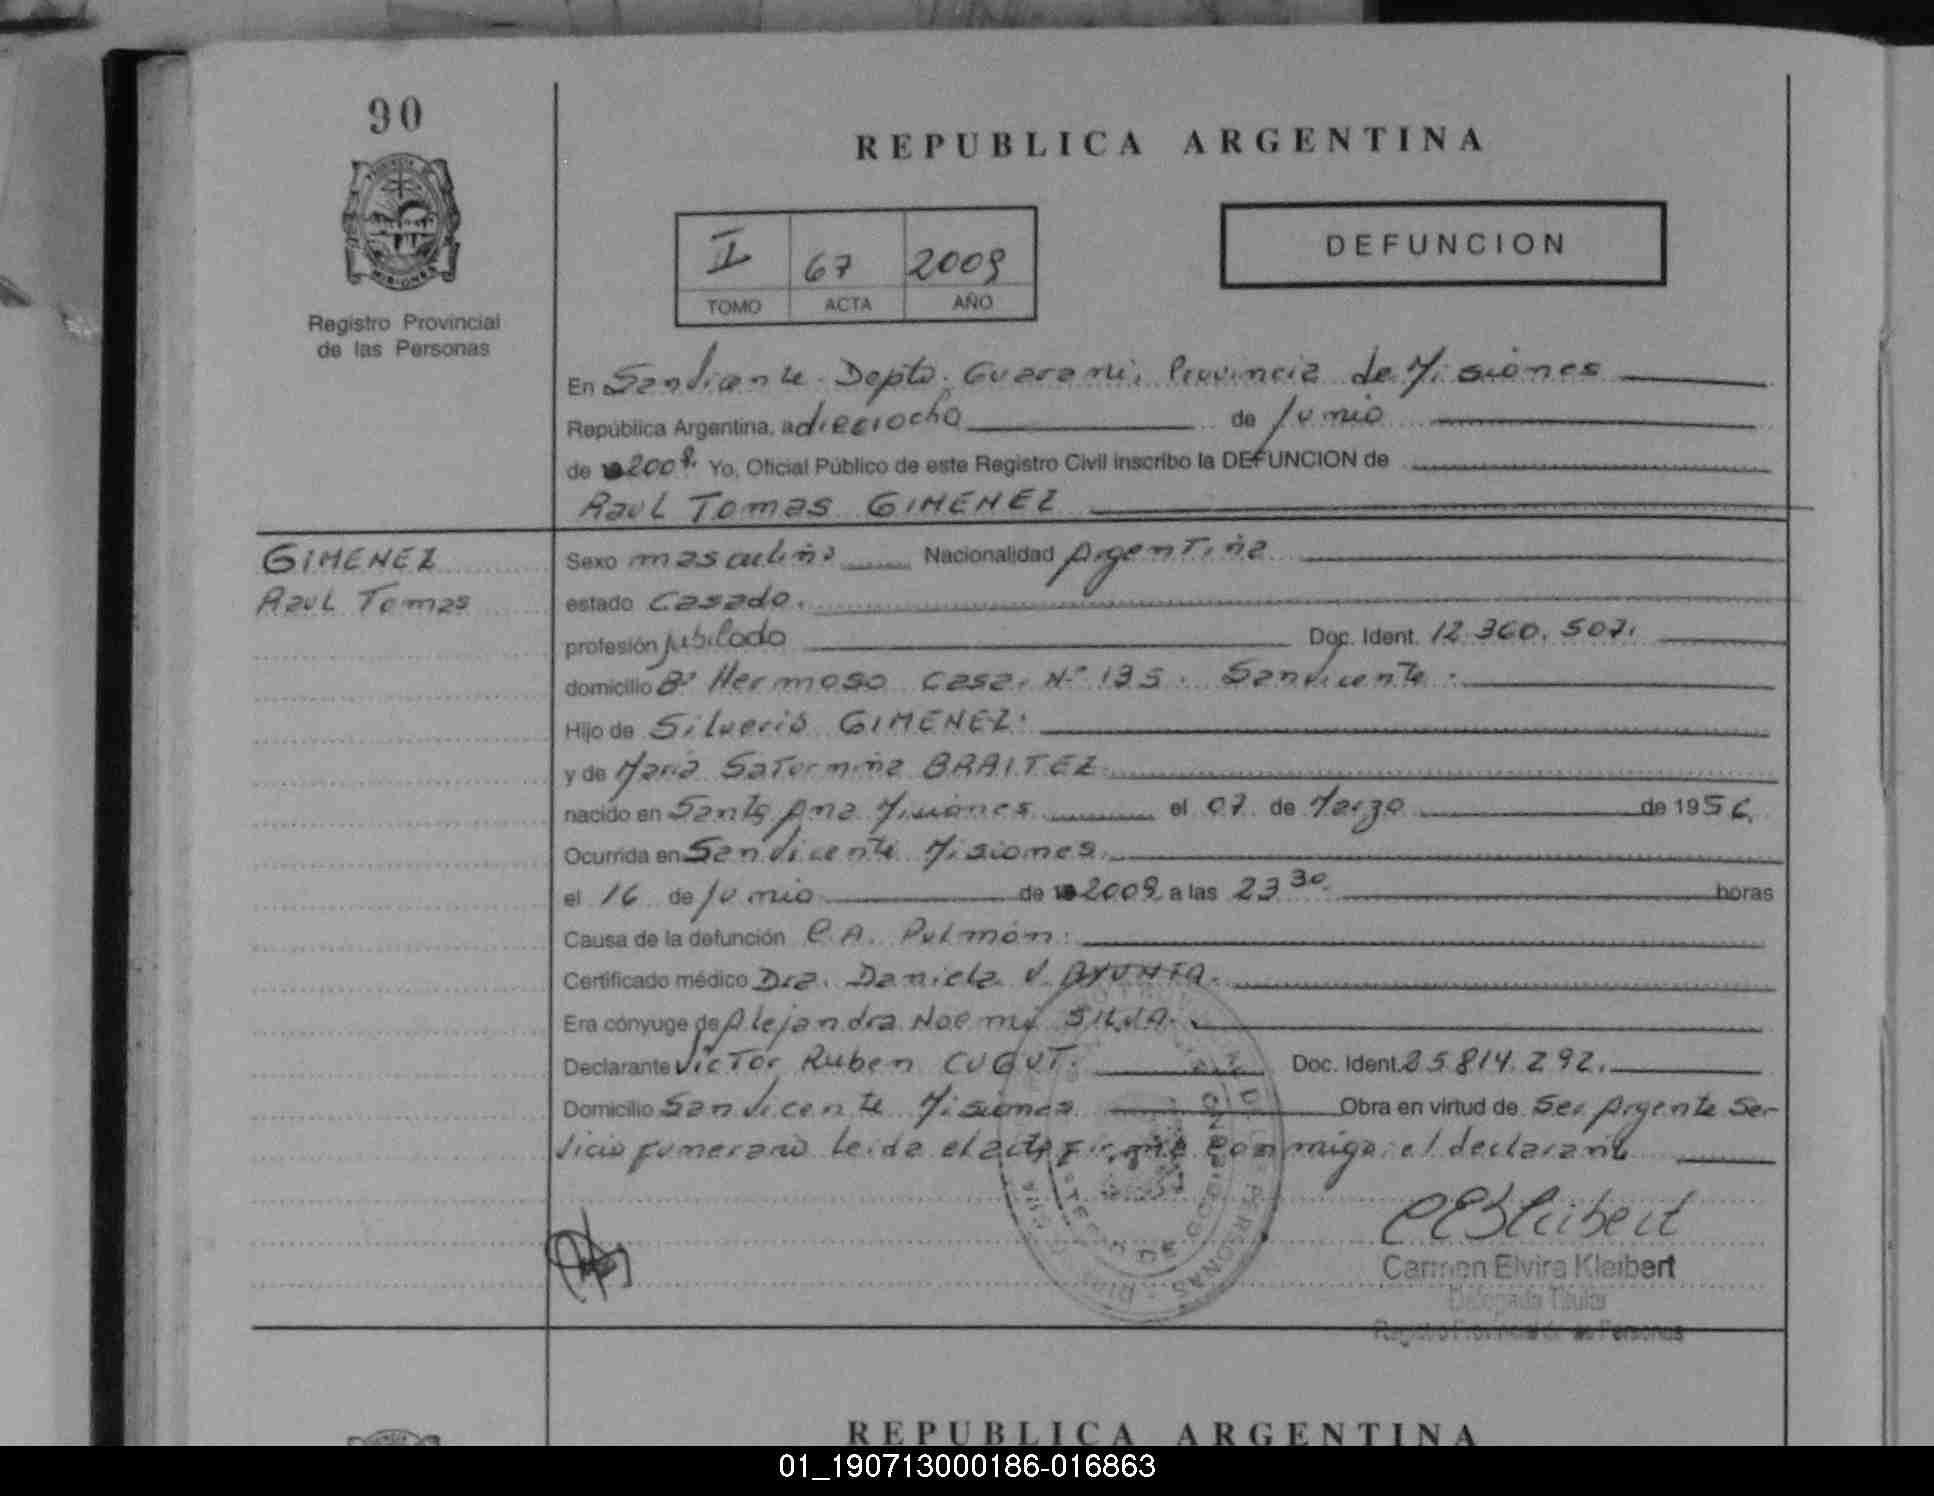 90
REPUBLICA ARGENTINA
II 67 2009
TOMO ACTA AÑO
DEFUNCION
Registro Provincial
de las Personas
En San Vicente Depto. Guarani, Provincia de Misiones
República Argentina, a dieciocho de Junio
de 2009. Yo, Oficial Público de este Registro Civil inscribo la DEFUNCION de
Raul Tomas GIMENEZ
GIMENEZ
Raul Tomas
Sexo masculino Nacionalidad Argentina
estado Casado.
profesión jubilado Doc. Ident. 12.360.507.
domicilio Bº Hermoso Casa. Nº 135. San Vicente.
Hijo de Silverio GIMENEZ.
y de Maria Saturnina BRAITEZ
nacido en Santa Ana Misiones el 07 de Marzo de 1956.
Ocurrida en San Vicente Misiones.
el 16 de Junio de 2009 a las 23 30 horas
Causa de la defunción C.A. Pulmón.
Certificado médico Dra. Daniela V.
Era cónyuge de Alejandra Noemi SILVA.
Declarante Victor Ruben CUQUT. Doc. Ident. 25.814.292.
Domicilio San Vicente Misiones Obra en virtud de Ser Argente Ser-
vicio funerario leida el acta firma conmigo el declarante
CEKleibert
Carmen Elvira Kleibert
Delegada Titular
Registro Provincial de las Personas
REPUBLICA ARGENTINA
01_190713000186-016863